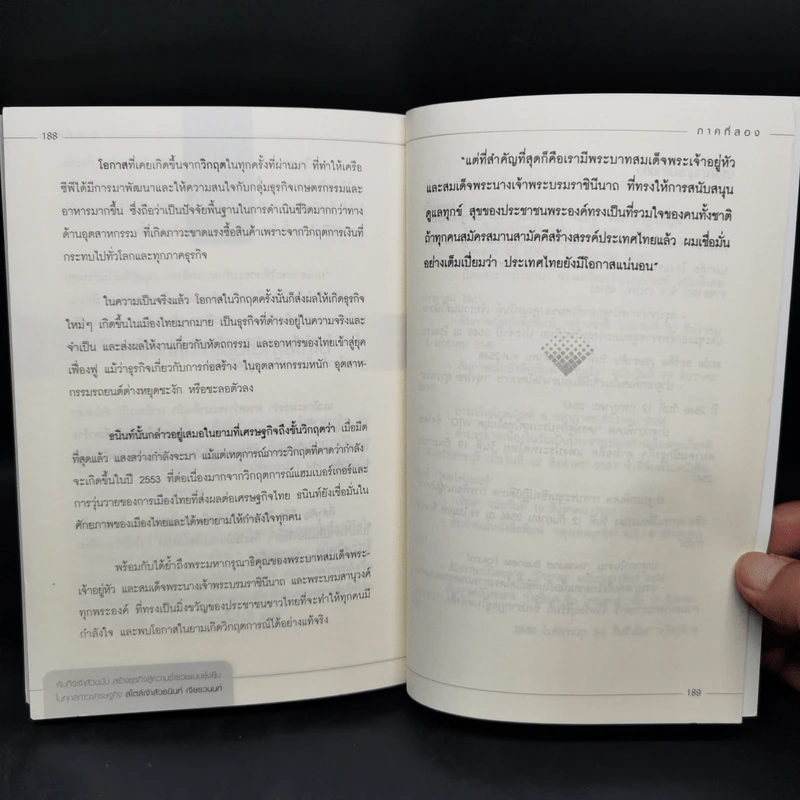 188
โอกาสที่เคยเกิดขึ้นจากวิกฤตในทุกครั้งที่ผ่านมา ที่ทำให้เครือ
ซีพีได้มีการมาพัฒนาและให้ความสนใจกับกลุ่มธุรกิจเกษตรกรรมและ
อาหารมากขึ้น ซึ่งถือว่าเป็นปัจจัยพื้นฐานในการดำเนินชีวิตมากกว่าทาง
ด้านอุตสาหกรรม ที่เกิดภาวะขาดแรงซื้อสินค้าเพราะจากวิกฤตการเงินที่
กระทบไปทั่วโลกและทุกภาคธุรกิจ
ในความเป็นจริงแล้ว โอกาสในวิกฤตครั้งนั้นก็ส่งผลให้เกิดธุรกิจ
ใหม่ๆ เกิดขึ้นในเมืองไทยมากมาย เป็นธุรกิจที่ดำรงอยู่ในความจริงและ
จำเป็น และส่งผลให้งานเกี่ยวกับหัตถกรรม และอาหารของไทยเข้าสู่ยุค
เฟื่องฟู แม้ว่าธุรกิจเกี่ยวกับการก่อสร้าง ในอุตสาหกรรมหนัก อุตสาห-
กรรมรถยนต์ต่างหยุดชะงัก หรือชะลอตัวลง
ธนินท์นั้นกล่าวอยู่เสมอในยามที่เศรษฐกิจถึงขั้นวิกฤตว่า เมื่อมืด
ที่สุดแล้ว แสงสว่างกำลังจะมา แม้แต่เหตุการณ์ภาวะวิกฤตที่คาดว่ากำลัง
จะเกิดขึ้นในปี 2553 ที่ต่อเนื่องมากจากวิกฤตการณ์แฮมเบอร์เกอร์และ
การวุ่นวายของการเมืองไทยที่ส่งผลต่อเศรษฐกิจไทย ธนินท์ยังเชื่อมั่นใน
ศักยภาพของเมืองไทยและได้พยายามให้กำลังใจทุกคน
พร้อมกับได้ย้ำถึงพระมหากรุณาธิคุณของพระบาทสมเด็จพระ-
เจ้าอยู่หัว และสมเด็จพระนางเจ้าพระบรมราชินีนาถ และพระบรมสานุวงศ์
ทุกพระองค์ ที่ทรงเป็นมิ่งขวัญของประชาชนชาวไทยที่จะทำให้ทุกคนมี
กำลังใจ และพบโอกาสในยามเกิดวิกฤตการณ์ได้อย่างแท้จริง
คัมภีร์เจ้าสัวฉบับ สร้างธุรกิจสู่ความร่ำรวยแบบยั่งยืน
ในทุกสภาวะเศรษฐกิจ สไตล์เจ้าสัวธนินท์ เจียรวนนท์
ภาคที่สอง
"แต่ที่สำคัญที่สุดก็คือเรามีพระบาทสมเด็จพระเจ้าอยู่หัว
และสมเด็จพระนางเจ้าพระบรมราชินีนาถ ที่ทรงให้การสนับสนุน
ดูแลทุกข์ สุขของประชาชนพระองค์ทรงเป็นที่รวมใจของคนทั้งชาติ
ถ้าทุกคนสมัครสมานสามัคคีสร้างสรรค์ประเทศไทยแล้ว ผมเชื่อมั่น
อย่างเต็มเปี่ยมว่า ประเทศไทยยังมีโอกาสแน่นอน"
189